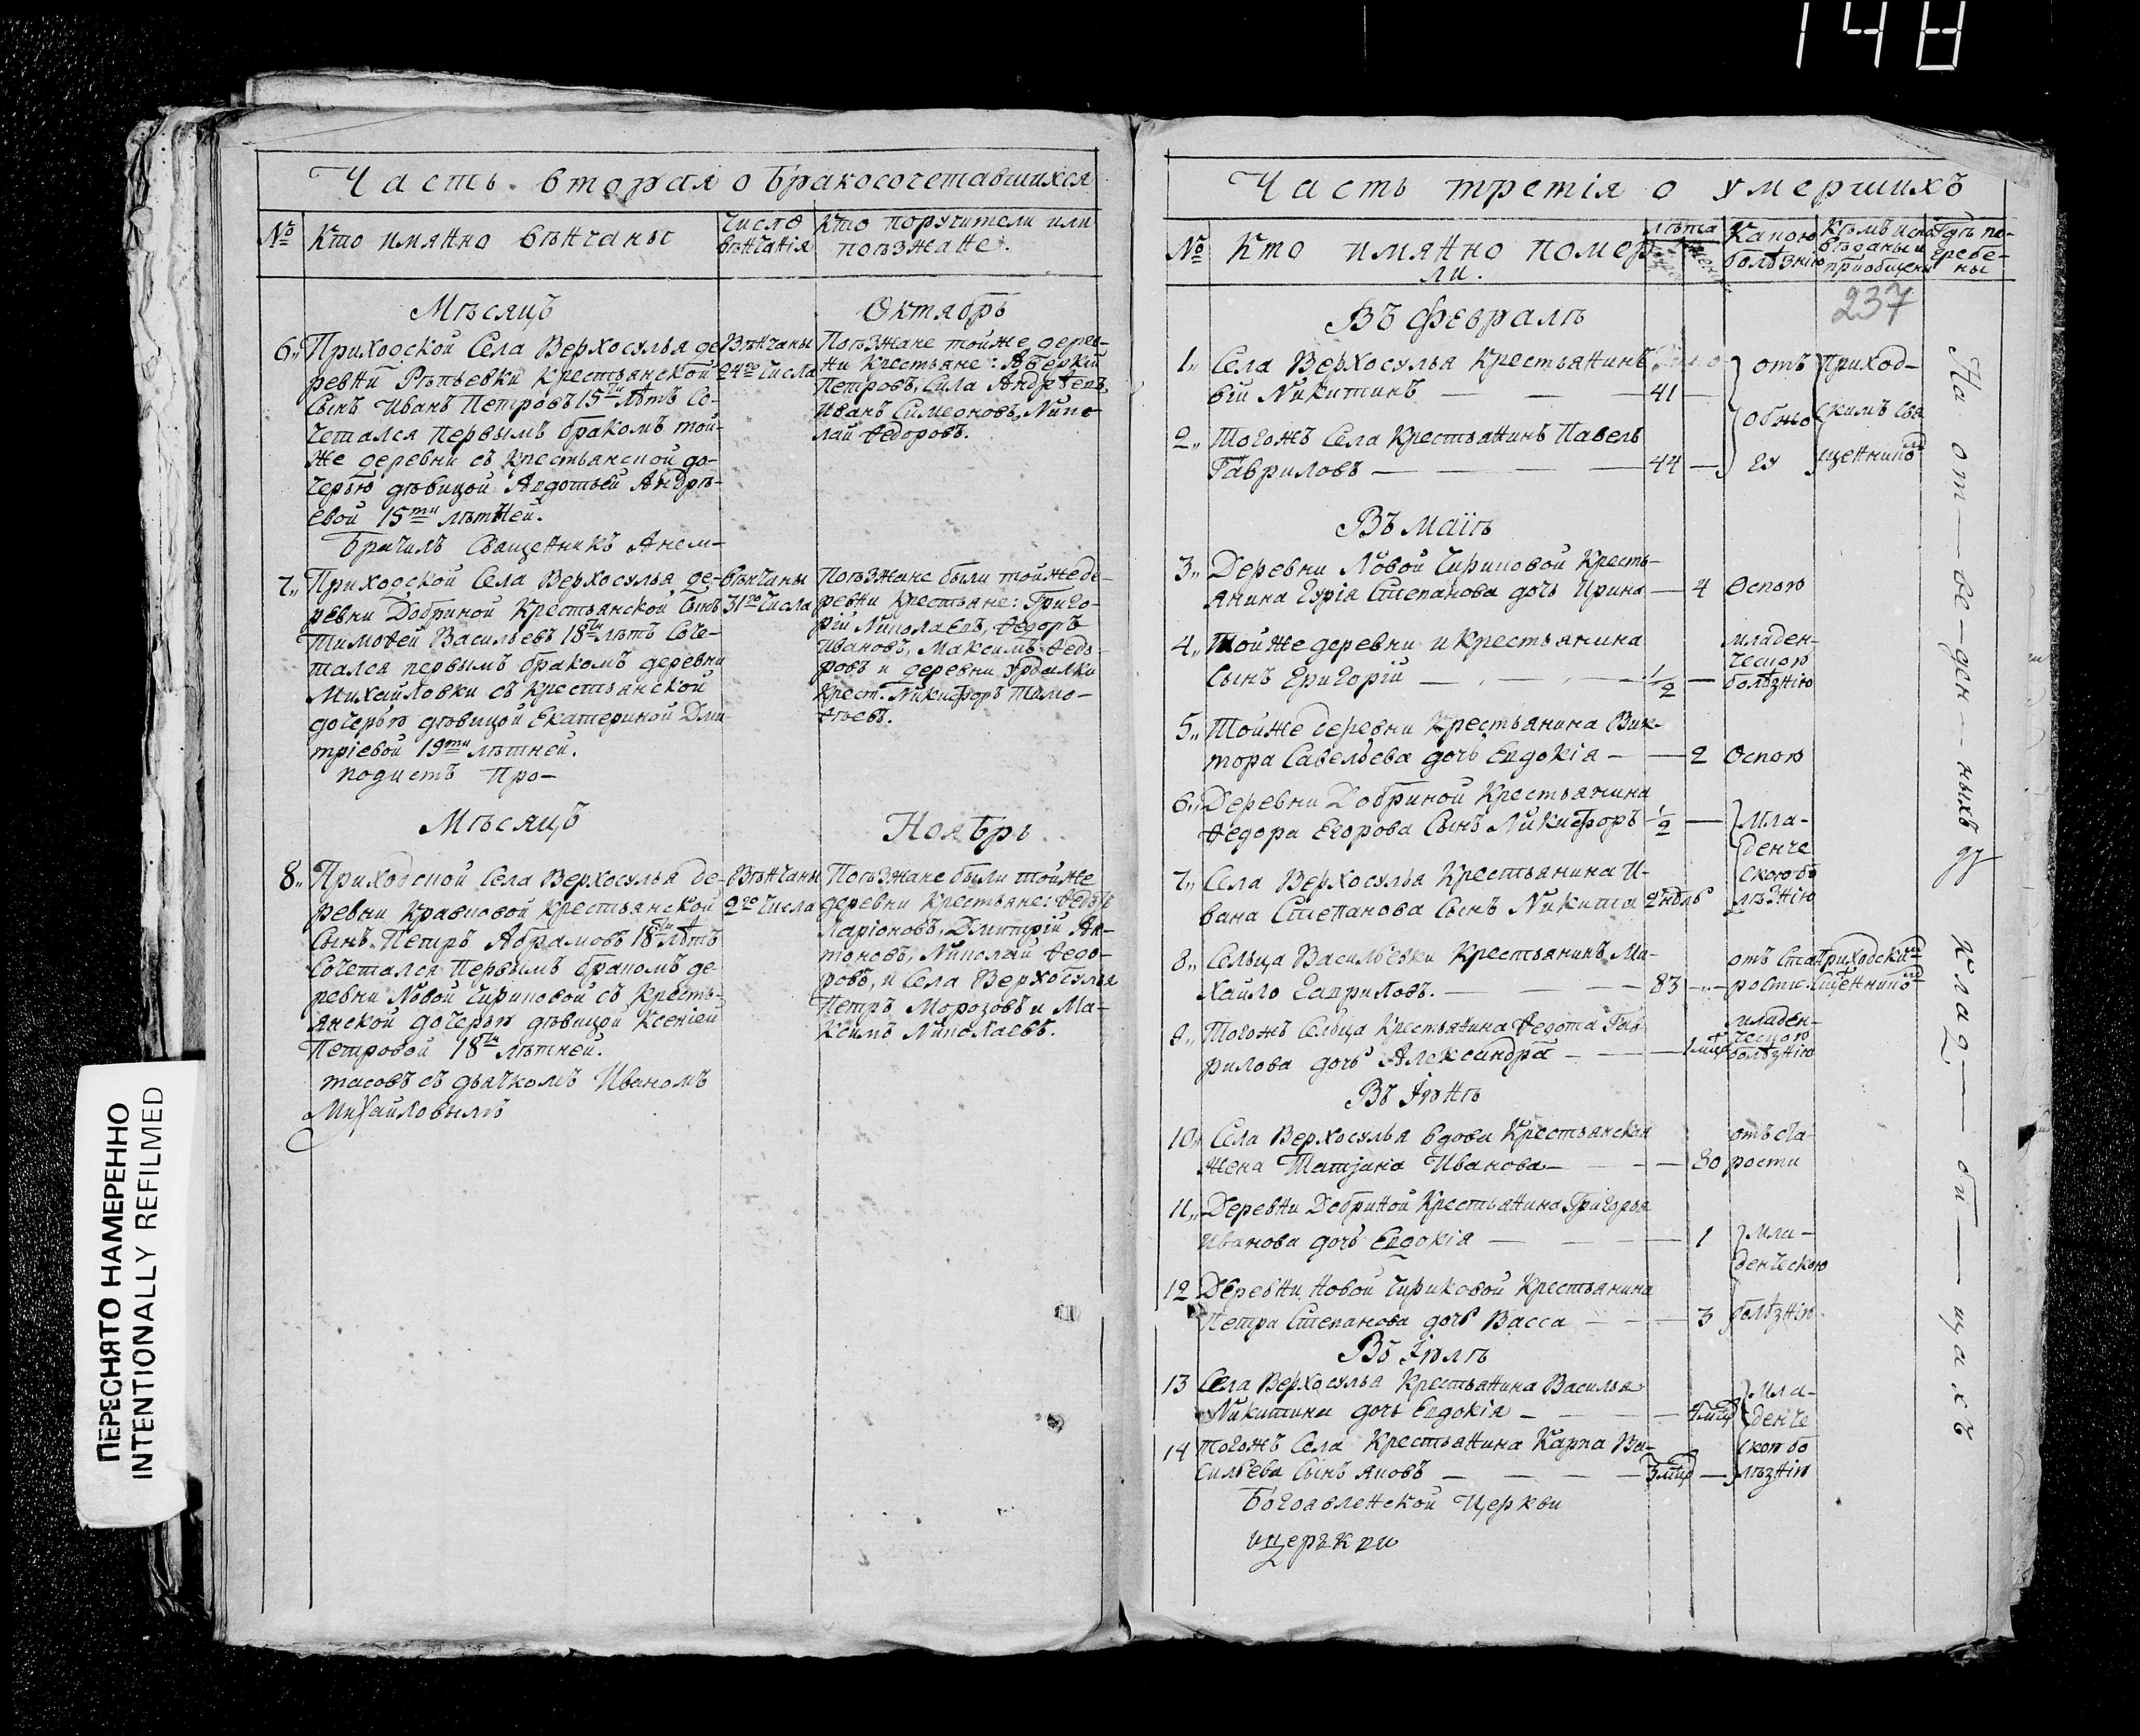 148
Часть вторая о бракосочетавшихся
№
Кто имянно вѣнчаны
Число
вѣнчанія
Кто поручители или
поѣзжане.
Мѣсяцъ
Октябрь
6,, Приходской Села Верхосулья де-
ревни Рѣпьевки крестьянской
Сынъ Иванъ Петровъ 15ти лѣтъ Со-
четался Первымъ бракомъ той-
же деревни съ крестьянской до-
черью дѣвицой Авдотьей Андрѣ-
евой 15ти лѣтней.
Вѣнчаны
24го Числа
Поѣзжане тойже дерев-
ни крестьяне: Аверкій
Петровъ, Сила Андрѣевъ,
Иванъ Симеоновъ, Нико-
лай Ѳедоровъ.
Брачилъ Священникъ Анем-
7,, Приходской Села Верхосулья де-
ревни Добриной Крестьянской Сынъ
Тимоѳей Васильевъ 18ти лѣтъ Соче-
тался первымъ бракомъ деревни
Михайловки съ Крестьянской
дочерью дѣвицой Екатериной Дми-
тріевой 19ти лѣтней.
вѣнчаны
31го Числа
Поѣзжане были тойже де-
ревни Крестьяне: Григо-
рій Николаевъ, Ѳедоръ
Ивановъ, Максимъ Ѳедо-
ровъ и деревни Урдилки
Крест. Никифоръ Тимо-
ѳѣевъ.
подистъ Про-
Мѣсяцъ
Ноябрь
8,, Приходской Села Верхосулья де-
ревни Кравцовой Крестьянской
Сынъ Петръ Абрамовъ 18ти лѣтъ
Сочетался Первымъ бракомъ де-
ревни Новой Чириковой съ Кресть-
янской дочерью дѣвицой Ксеніей
Петровой 18ти лѣтней.
Вѣнчаны
2го Числа
Поѣзжане были тойже
деревни Крестьяне: Ѳедоръ
Ларіоновъ, Дмитрій Ан-
тоновъ, Николай Ѳедо-
ровъ, и Села Верхосулья
Петръ Морозовъ и Ма-
ксимъ Николаевъ.
тасовъ съ дьячкомъ Иваномъ
Михайловымъ
ПЕРЕСНЯТО НАМЕРЕННО
INTENTIONALLY REFILMED
Часть третія о умершихъ
№
Кто имянно помер-
ли.
Лѣта
Какою
болѣзнію
Кѣмъ испо-
вѣданы и
пріобщены
Гдѣ по-
гребе-
ны
237
Въ Февралѣ
1,, Села Верхосулья Крестьянинъ
вій Никитинъ — 41 —
2,, Тогожъ Села Крестьянинъ Павелъ
Гавриловъ — 44 —
отъ
Приход-
скимъ Свя
щенником
Въ маіѣ
3,, Деревни Новой Чириковой Кресть-
янина Гурія Степанова дочь Ирина — 4 Оспою
4,, Тойже деревни и крестьянина
Сынъ Григорій — 1/2 —
младен-
ческою
болѣзнію
5,, Тойже деревни Крестьянина Вик-
тора Савельева дочь Евдокія — 2 Оспою
6,, Деревни Добриной Крестьянина
Ѳедора Егорова Сынъ Никифоръ 1/2 —
7,, Села Верхосулья Крестьянина И-
вана Степанова Сынъ Никита 2 ндль
Мла-
денче
скою бо
лѣзнію
8,, Сельца Васильевки Крестьянинъ Ми-
хайло Гавриловъ. — 83 —
отъ Ста
рости
Приходским
Сщенником
9,, Тогожъ Сельца Крестьянина Ѳедота Гав-
рилова дочь Александра — 1 мцъ
младен-
ческою
болѣзнію
Въ Іюнѣ
10,, Села Верхосулья вдова Крестьянская
жена Татіана Иванова — 80
отъ ста-
рости
11,, Деревни Добриной Крестьянина Григорья
Иванова дочь Евдокія — 1
12 Деревни Новой Чириковой Крестьянина
Петра Степанова дочь Васса — 3
Мла-
денческою
болѣзнію
Въ Іюлѣ
13 Села Верхосулья Крестьянина Василья
Никитина дочь Евдокія —
14 тогожъ Села Крестьянина Карпа Ва-
сильева Сынъ Яковъ — 3 мцъ —
Мла-
денче
скою бо
лѣзнію
Богоявленской Церкви
На от—ве—ден—ныхъ клад— би—щахъ